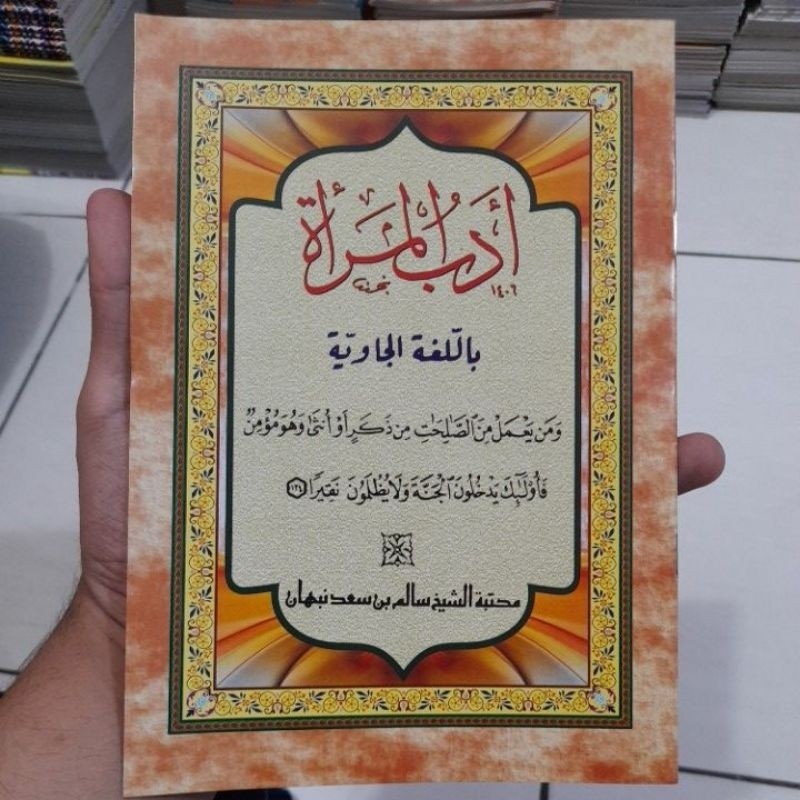 أَدَبُ المَرْأَة
١٤٠٦
باللّغة الجاويّة
وَمَن يَعْمَلْ مِنَ ٱلصَّـٰلِحَـٰتِ مِن ذَكَرٍ أَوْ أُنثَىٰ وَهُوَ مُؤْمِنٌ
فَأُو۟لَـٰٓئِكَ يَدْخُلُونَ ٱلْجَنَّةَ وَلَا يُظْلَمُونَ نَقِيرًا ١٢٤
مكتبة الشيخ سالم بن سعد نبهان